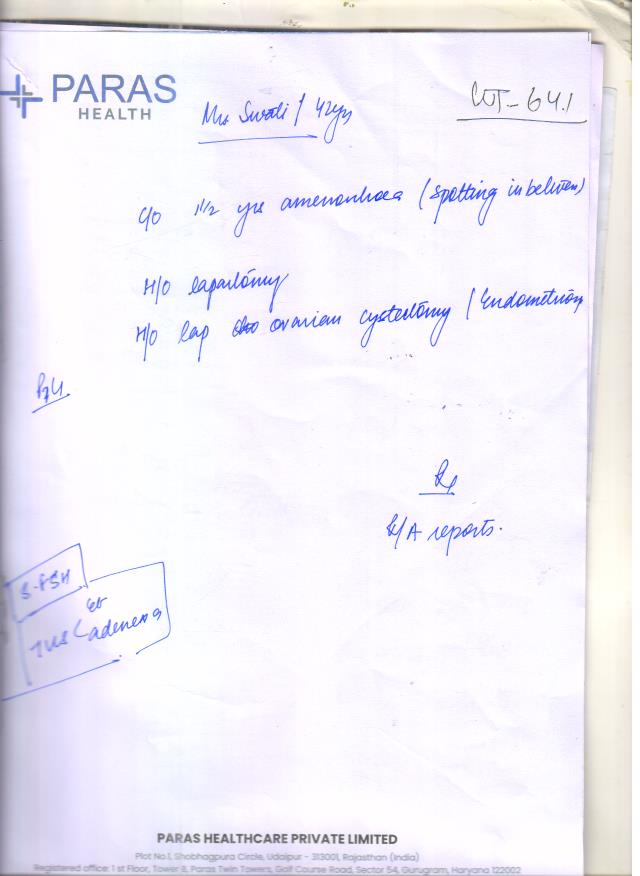 PARAS
HEALTH
Mrs Swati / 42yrs
WT - 64.1
C/O 1 1/2 yrs amenorrhoea (spotting in between)
H/O laparotomy
H/O lap ovarian cystectomy / Endometriosis
P2L1
Rx
R/A reports.
S-FSH
TVS < ET
adenexa
PARAS HEALTHCARE PRIVATE LIMITED
Plot No.1, Shobhagpura Circle, Udaipur - 313001, Rajasthan (India)
Registered office: 1 st Floor, Tower B, Paras Twin Towers, Golf Course Road, Sector 54, Gurugram, Haryana 122002